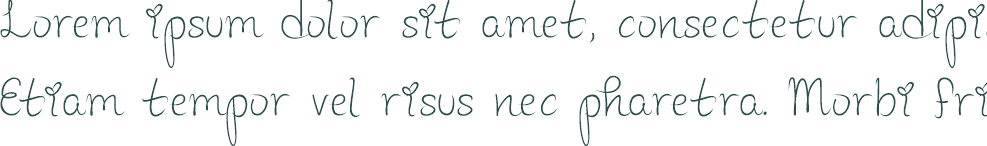 Lorem ipsum dolor sit amet, consectetur adipi
Etiam tempor vel risus nec pharetra. Morbi fri